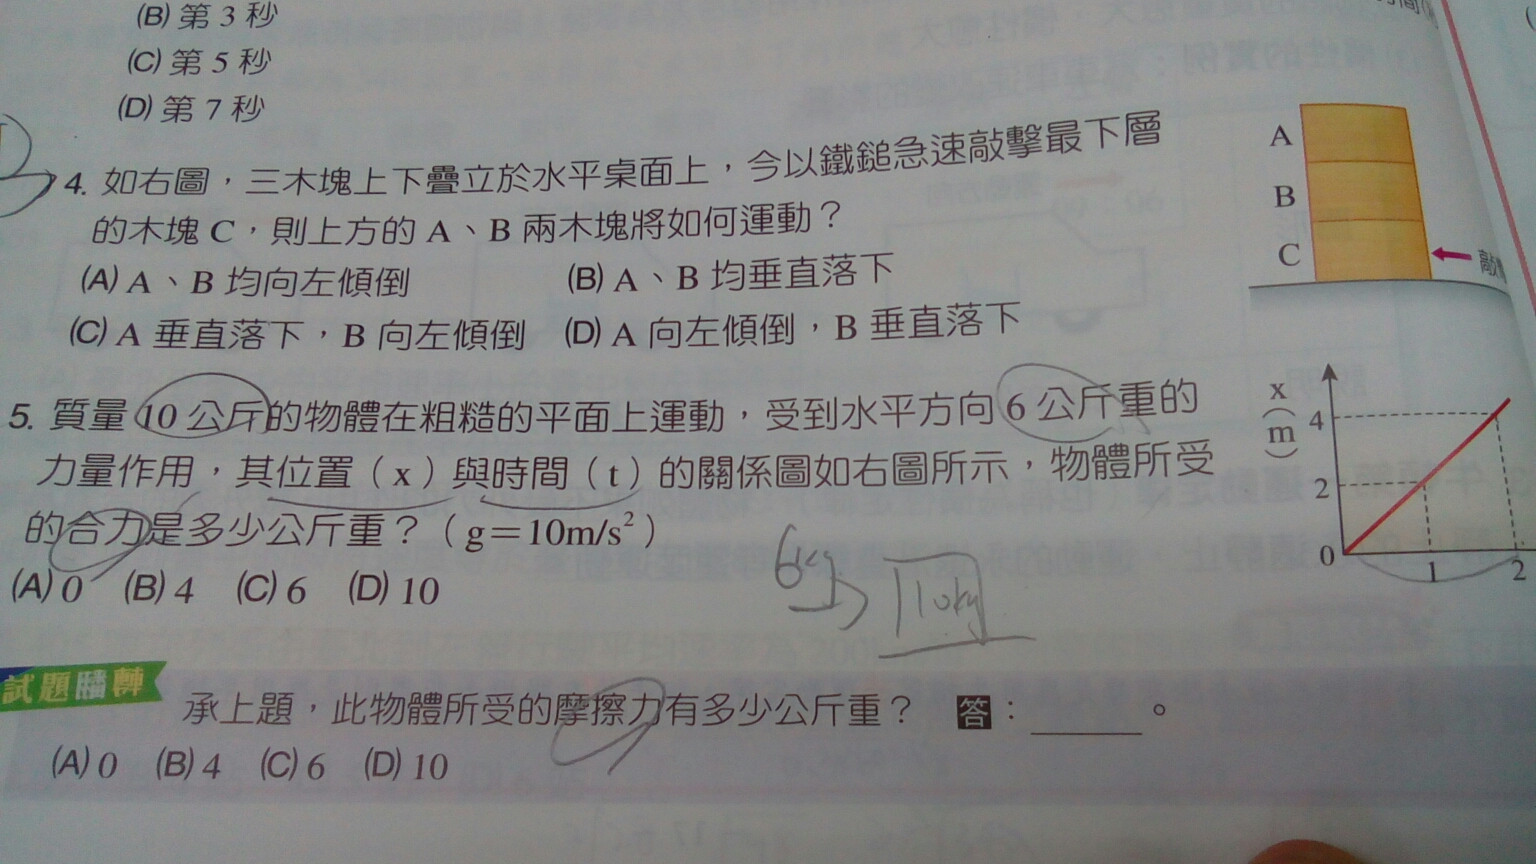 (B) 第 3 秒
(C) 第 5 秒
(D) 第 7 秒
4. 如右圖，三木塊上下疊立於水平桌面上，今以鐵鎚急速敲擊最下層
的木塊 C，則上方的 A、B 兩木塊將如何運動？
(A) A、B 均向左傾倒 (B) A、B 均垂直落下
(C) A 垂直落下，B 向左傾倒 (D) A 向左傾倒，B 垂直落下
A
B
C
敲
5. 質量 10 公斤的物體在粗糙的平面上運動，受到水平方向 6 公斤重的
力量作用，其位置（x）與時間（t）的關係圖如右圖所示，物體所受
的合力是多少公斤重？（g＝10m/s²）
(A) 0 (B) 4 (C) 6 (D) 10
x
(m)
4
2
0
1
2
10kg
試題轉
承上題，此物體所受的摩擦力有多少公斤重？ 答：＿＿＿。
(A) 0 (B) 4 (C) 6 (D) 10